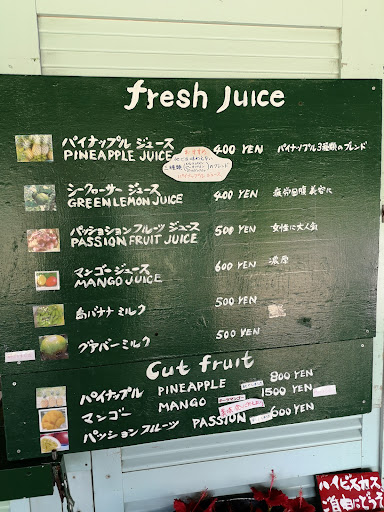 fresh Juice
パイナップル ジュース 400 YEN パイナップル3種類のブレンド
PINEAPPLE JUICE
シークヮーサー ジュース 400 YEN 疲労回復 美容に
GREEN LEMON JUICE
パッションフルーツ ジュース 500 YEN 女性に大人気
PASSION FRUIT JUICE
マンゴージュース 600 YEN 濃厚
MANGO JUICE
島バナナ ミルク 500 YEN
グァバーミルク 500 YEN
Cut fruit
パイナップル PINEAPPLE 800 YEN
マンゴー MANGO 1500 YEN
パッションフルーツ PASSION 600 YEN
ハイビスカス
ご自由にどうぞ